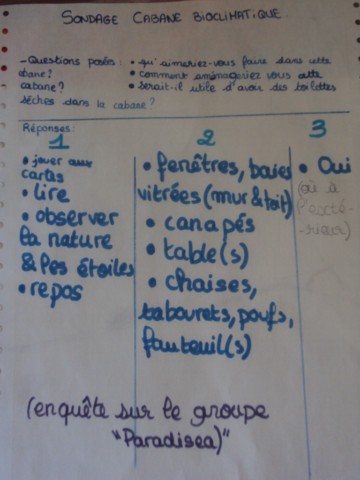 SONDAGE CABANE BIOCLIMATIQUE.
-Questions posées: • qu'aimeriez-vous faire dans cette
cabane? • comment aménageriez vous cette
cabane? • serait-il utile d'avoir des toilettes
sèches dans la cabane?
Réponses:
1
• jouer aux
cartes
• lire
• observer
la nature
& les étoiles
• repos
2
• fenêtres, baies
vitrées (mur & toit)
• canapés
• table(s)
• chaises,
tabourets, poufs,
fauteuil(s)
3
• Oui
(où à
l'exté-
rieur)
(enquête sur le groupe
"Paradisea)"